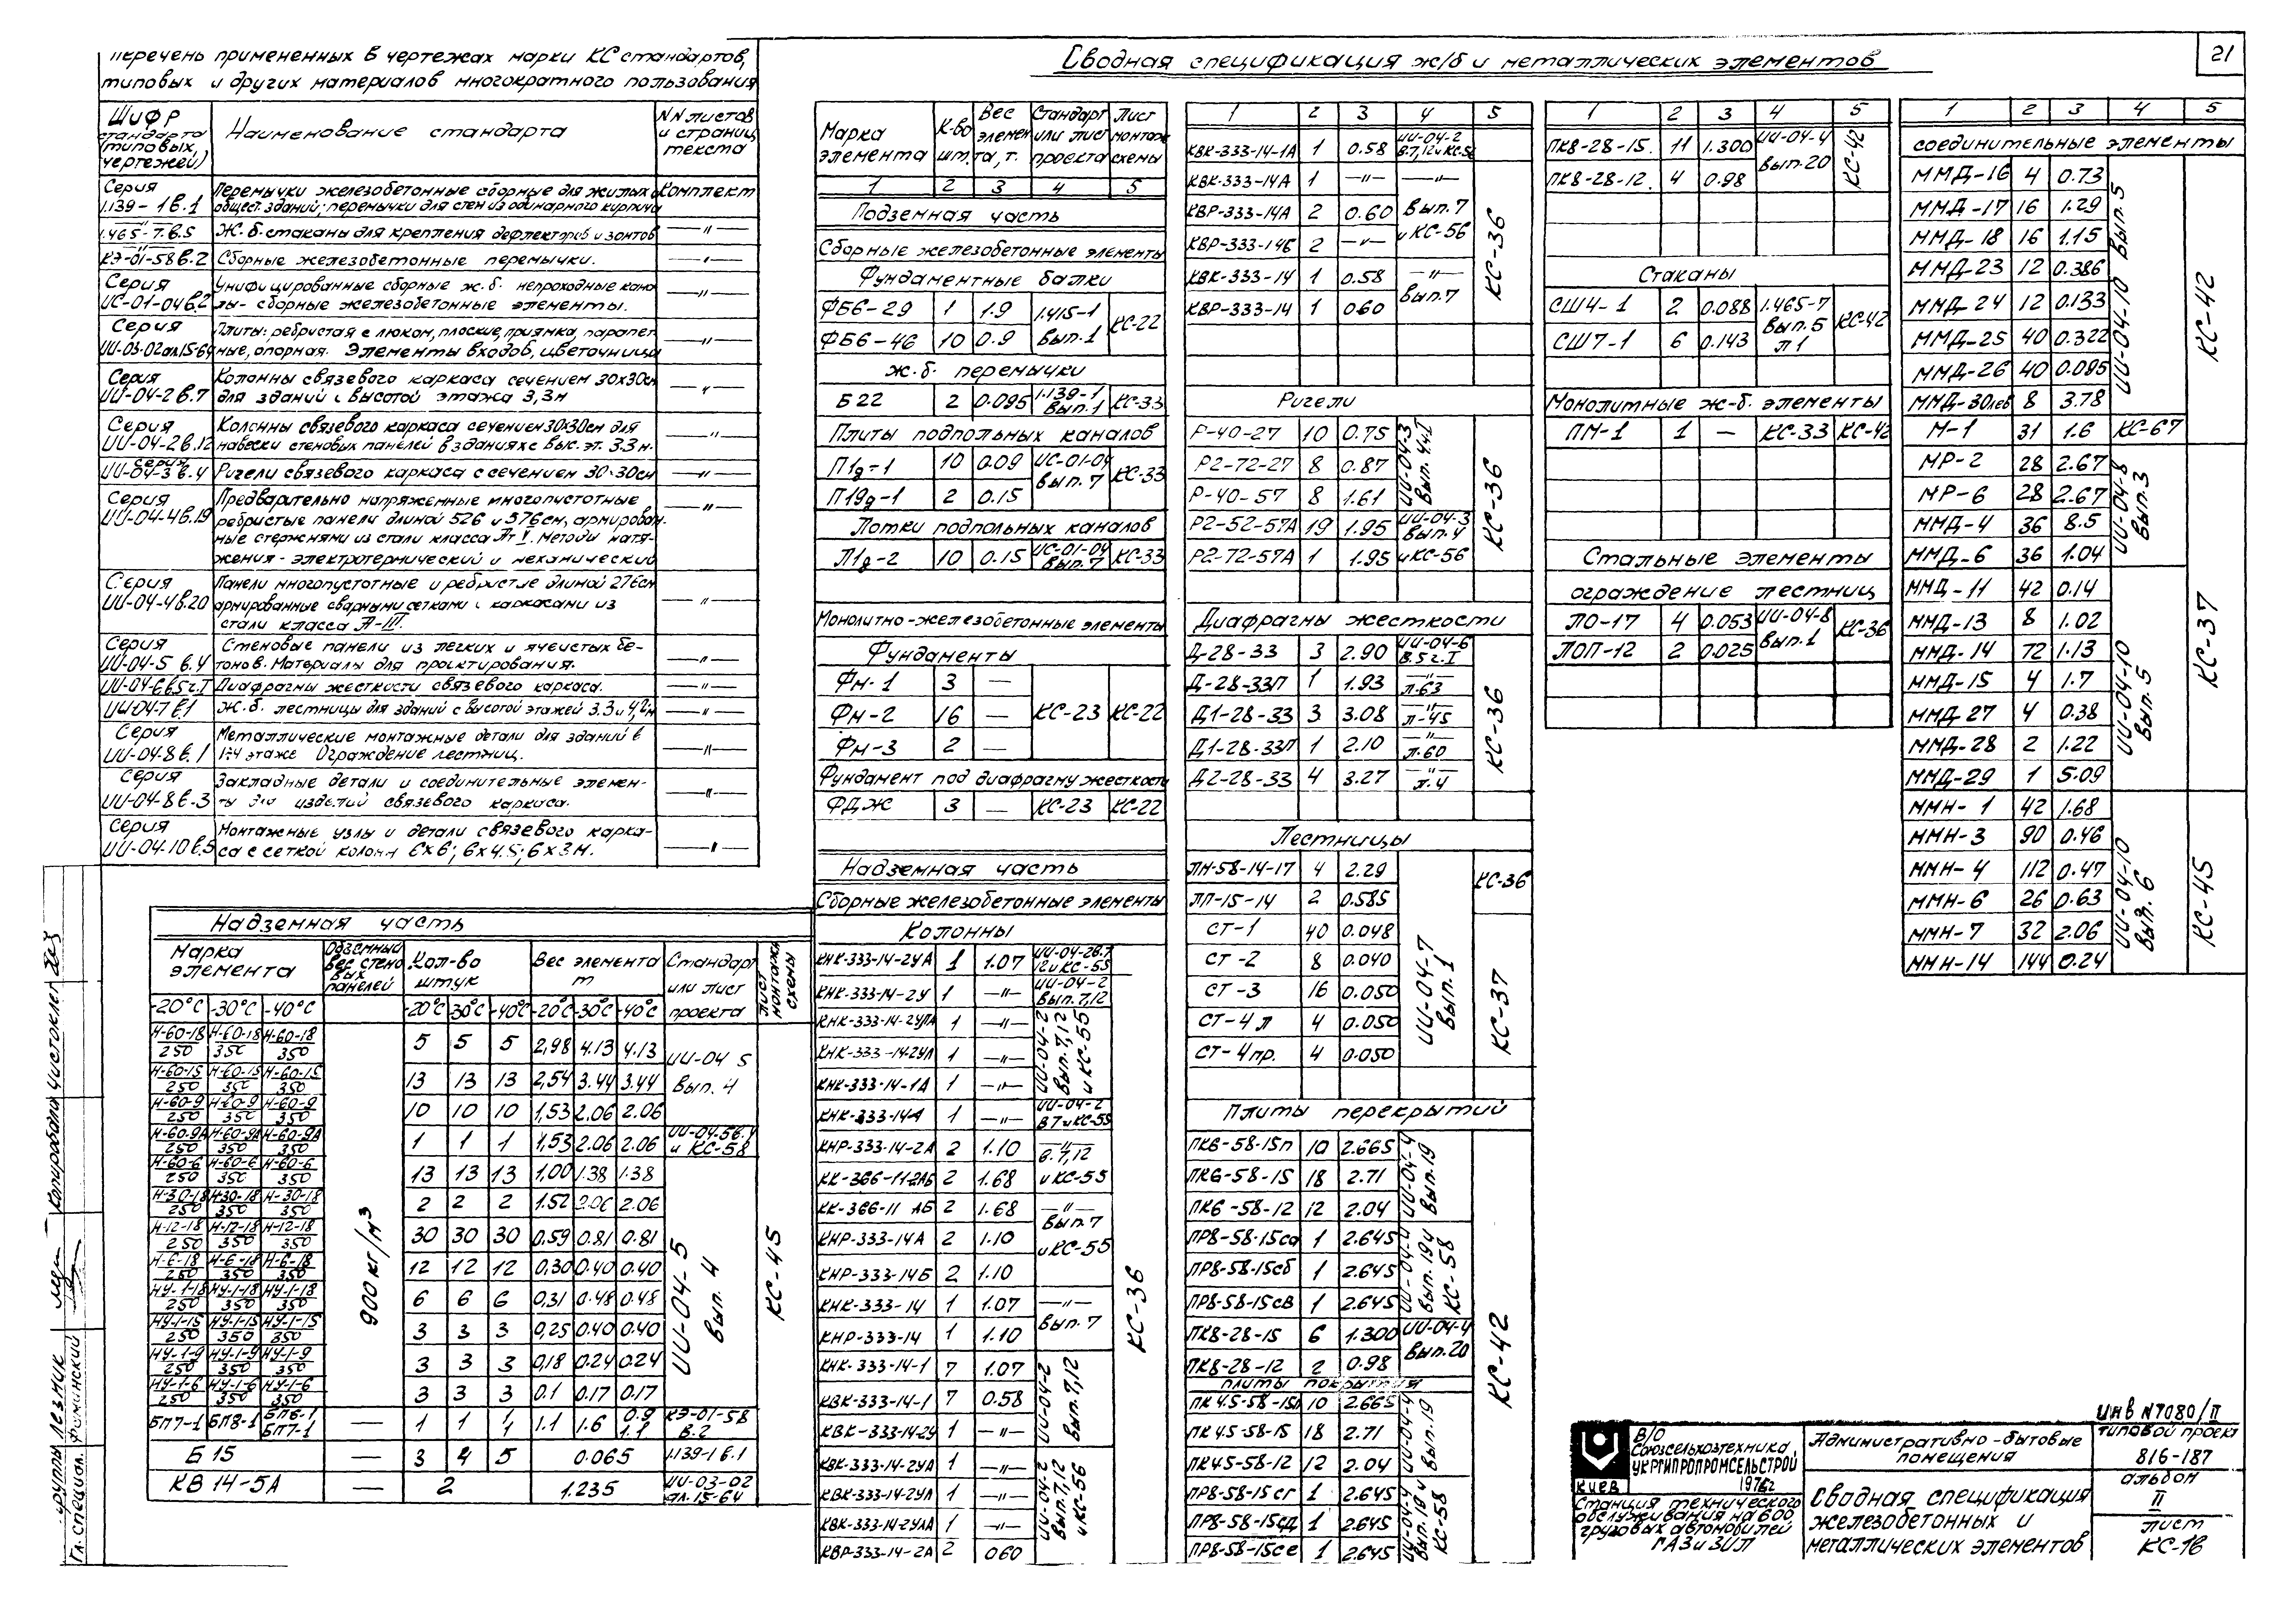 21
Перечень примененных в чертежах марки КС стандартов,
типовых и других материалов многократного пользования
Шифр стандарта (типовых, чертежей) | Наименование стандарта | NN листов и страниц текста
Серия 1.139-1 в.1 | Перемычки железобетонные сборные для жилых и обществ. зданий; перемычки для стен из одинарного кирпича | Комплект
1.465-7. в.5 | Ж.б. стаканы для крепления дефлекторов и зонтов | —"—
КЭ-01-58 в.2 | Сборные железобетонные перемычки. | —"—
Серия ИС-01-04 в.2 | Унифицированные сборные ж.б. непроходные каналы - сборные железобетонные элементы. | —"—
Серия ИИ-03-02 ал.15-64 | Плиты: ребристая с люком, плоские, приямка, парапетные, опорная. Элементы входов, цветочница | —"—
Серия ИИ-04-2 в.7 | Колонны связевого каркаса сечением 30х30см для зданий с высотой этажа 3,3м | —"—
Серия ИИ-04-2 в.12 | Колонны связевого каркаса сечением 30х30см для навески стеновых панелей в зданиях с выс. эт. 3.3м. | —"—
Серия ИИ-04-3 в.4 | Ригели связевого каркаса с сечением 30·30см | —"—
Серия ИИ-04-4 в.19 | Предварительно напряженные многопустотные ребристые панели длиной 526 и 576см, армированные стержнями из стали класса Ат V. Методы натяжения - электротермический и механический | —"—
Серия ИИ-04-4 в.20 | Панели многопустотные и ребристые длиной 276см армированные сварными сетками и каркасами из стали класса А-III. | —"—
Серия ИИ-04-5 в.4 | Стеновые панели из легких и ячеистых бетонов. Материалы для проектирования. | —"—
ИИ-04-6 в.5 ч.I | Диафрагмы жесткости связевого каркаса. | —"—
ИИ-04-7 в.1 | Ж.б. лестницы для зданий с высотой этажей 3.3 и 4,2м | —"—
Серия ИИ-04-8 в.1 | Металлические монтажные детали для зданий в 1÷4 этаже Ограждение лестниц. | —"—
Серия ИИ-04-8 в-3 | Закладные детали и соединительные элементы для изделий связевого каркаса. | —"—
Серия ИИ-04-10 в.5 | Монтажные узлы и детали связевого каркаса с сеткой колонн 6х6; 6х4.5; 6х3м. | —"—
Надземная часть
Марка элемента | Объемный вес стеновых панелей | Кол-во штук | Вес элемента т | Стандарт или лист проекта | Лист монтажн. схемы
-20°С | -30°С | -40°С | -20°С | -30°С | -40°С | -20°С | -30°С | -40°С
Н-60-18/250 | Н-60-18/350 | Н-60-18/350 | 5 | 5 | 5 | 2,98 | 4.13 | 4.13 | ИИ-04 5 Вып. 4
Н-60-15/250 | Н-60-15/350 | Н-60-15/350 | 13 | 13 | 13 | 2,54 | 3.44 | 3.44
Н-60-9/250 | Н-60-9/350 | Н-60-9/350 | 10 | 10 | 10 | 1,53 | 2.06 | 2.06
Н-60-9А/250 | Н-60-9А/350 | Н-60-9А/350 | 1 | 1 | 1 | 1,53 | 2.06 | 2.06 | ИИ-04-5 в.4 и КС-58
Н-60-6/250 | Н-60-6/350 | Н-60-6/350 | 13 | 13 | 13 | 1,00 | 1.38 | 1.38
Н-30-18/250 | Н-30-18/350 | Н-30-18/350 | 2 | 2 | 2 | 1.52 | 2.06 | 2.06
Н-12-18/250 | Н-12-18/350 | Н-12-18/350 | 30 | 30 | 30 | 0.59 | 0.81 | 0.81
Н-6-18/250 | Н-6-18/350 | Н-6-18/350 | 12 | 12 | 12 | 0.30 | 0.40 | 0.40
НУ-1-18/250 | НУ-1-18/350 | НУ-1-18/350 | 6 | 6 | 6 | 0,31 | 0.48 | 0.48
НУ-1-15/250 | НУ-1-15/350 | НУ-1-15/350 | 3 | 3 | 3 | 0,25 | 0.40 | 0.40
НУ-1-9/250 | НУ-1-9/350 | НУ-1-9/350 | 3 | 3 | 3 | 0,18 | 0.24 | 0.24
НУ-1-6/250 | НУ-1-6/350 | НУ-1-6/350 | 3 | 3 | 3 | 0.1 | 0.17 | 0.17
900 кг/м³
ИИ-04-5 Вып. 4
КС-45
БП7-1 | БП8-1 | БП6-1 БП7-1 | — | 1 | 1 | 1 1 | 1.1 | 1.6 | 0.9 1.1 | КЭ-01-58 в.2
Б 15 | — | 3 | 4 | 5 | 0.065 | 1.139-1 в.1
КВ 14-5А | — | 2 | 1.235 | ИИ-03-02 ал.15-64
Сводная спецификация ж/б и металлических элементов
Марка элемента | К-во шт. | Вес элемента, т. | Стандарт или лист проекта | Лист монтаж схемы
1 | 2 | 3 | 4 | 5
Подземная часть
Сборные железобетонные элементы
Фундаментные балки
ФБ6-29 | 1 | 1.9 | 1.415-1 Вып.1 | КС-22
ФБ6-46 | 10 | 0.9
ж.б. перемычки
Б 22 | 2 | 0.095 | 1.139-1 Вып.1 | КС-33
Плиты подпольных каналов
П1д-1 | 10 | 0.09 | ИС-01-04 Вып. 7 | КС-33
П19д-1 | 2 | 0.15
Лотки подпольных каналов
Л1д-2 | 10 | 0.15 | ИС-01-04 Вып.7 | КС-33
Монолитно-железобетонные элементы
Фундаменты
Фм-1 | 3 | —
Фм-2 | 16 | — | КС-23 | КС-22
Фм-3 | 2 | —
Фундамент под диафрагму жесткости
ФДЖ | 3 | — | КС-23 | КС-22
Надземная часть
Сборные железобетонные элементы
Колонны
КНК-333-14-2УА | 1 | 1.07 | ИИ-04-2 в.7 12 и КС-55
КНК-333-14-2У | 1 | —"— | ИИ-04-2 Вып.7,12
КНК-333-14-2УЛА | 1 | —"— | ИИ-04-2 Вып.7,12 и КС-55
КНК-333-14-2УЛ | 1 | —"—
КНК-333-14-1А | 1 | —"—
КНК-333-14А | 1 | —"— | ИИ-04-2 В7 и КС-55
КНР-333-14-2А | 2 | 1.10 | —"— в.7,12
КК-366-11-2АБ | 2 | 1.68 | и КС-55
КК-366-11 АБ | 2 | 1.68 | —"— Вып.7
КНР-333-14А | 2 | 1.10 | и КС-55
КНР-333-14Б | 2 | 1.10
КНК-333-14 | 1 | 1.07 | —"— Вып. 7
КНР-333-14 | 1 | 1.10
КНК-333-14-1 | 7 | 1.07 | ИИ-04-2 Вып.7,12
КВК-333-14-1 | 7 | 0.58
КВК-333-14-2У | 1 | —"—
КВК-333-14-2УА | 1 | —"— | ИИ-04-2 Вып.7,12 и КС-56
КВК-333-14-2УЛ | 1 | —"—
КВК-333-14-2УЛА | 1 | —"—
КВР-333-14-2А | 2 | 0.60
КС-36
1 | 2 | 3 | 4 | 5
КВК-333-14-1А | 1 | 0.58 | ИИ-04-2 В.7,12 и КС-56
КВК-333-14А | 1 | —"— | —"—
КВР-333-14А | 2 | 0.60 | Вып.7
КВР-333-14Б | 2 | —"— | и КС-56
КВК-333-14 | 1 | 0.58 | —"— Вып.7
КВР-333-14 | 1 | 0.60
КС-36
Ригели
Р-40-27 | 10 | 0.75 | ИИ-04-3 Вып. 4 ч.I
Р2-72-27 | 8 | 0.87
Р-40-57 | 8 | 1.61
Р2-52-57А | 19 | 1.95 | ИИ-04-3 Вып.4
Р2-72-57А | 1 | 1.95 | и КС-56
КС-36
Диафрагмы жесткости
Д-28-33 | 3 | 2.90 | ИИ-04-6 В.5 ч.I
Д-28-33П | 1 | 1.93 | —"— л.63
Д1-28-33 | 3 | 3.08 | —"— л-45
Д1-28-33П | 1 | 2.10 | —"— л.60
Д2-28-33 | 4 | 3.27 | —"— л.4
КС-36
Лестницы
ЛМ-58-14-17 | 4 | 2.29 | КС-36
ЛП-15-14 | 2 | 0.585
СТ-1 | 40 | 0.048
СТ-2 | 8 | 0.040
СТ-3 | 16 | 0.050
СТ-4л | 4 | 0.050
СТ-4пр. | 4 | 0.050
ИИ-04-7 Вып.1
КС-37
Плиты перекрытий
ПК6-58-15п | 10 | 2.665 | ИИ-04-4 Вып.19
ПК6-58-15 | 18 | 2.71
ПК6-58-12 | 12 | 2.04
ПР8-58-15са | 1 | 2.645 | ИИ-04-4 Вып. 19 и КС-58
ПР8-58-15сб | 1 | 2.645
ПР8-58-15св | 1 | 2.645
ПК8-28-15 | 6 | 1.300 | ИИ-04-4 Вып.20
ПК8-28-12 | 2 | 0.98
плиты покрытия
ПК4.5-58-15п | 10 | 2.665 | ИИ-04-4 Вып.19
ПК 4.5-58-15 | 18 | 2.71
ПК4.5-58-12 | 12 | 2.04
ПР8-58-15сг | 1 | 2.645 | ИИ-04-4 Вып.19 и КС-58
ПР8-58-15сд | 1 | 2.645
ПР8-58-15се | 1 | 2.645
КС-42
1 | 2 | 3 | 4 | 5
ПК8-28-15. | 11 | 1.300 | ИИ-04-4 Вып.20 | КС-42
ПК8-28-12. | 4 | 0.98
Стаканы
СШ4-1 | 2 | 0.088 | 1.465-7 Вып.5 л1 | КС-42
СШ7-1 | 6 | 0.143
Монолитные ж-б. элементы
ПМ-1 | 1 | — | КС-33 | КС-42
Стальные элементы
ограждение лестниц
ПО-17 | 4 | 0.053 | ИИ-04-8 Вып.1 | КС-36
ПОП-12 | 2 | 0.025
1 | 2 | 3 | 4 | 5
соединительные элементы
ММД-16 | 4 | 0.73
ММД-17 | 16 | 1.29
ММД-18 | 16 | 1.15
ММД-23 | 12 | 0.386
ММД-24 | 12 | 0.133
ММД-25 | 40 | 0.322
ММД-26 | 40 | 0.095
ММД-30лев | 8 | 3.78
ИИ-04-10 Вып.5
КС-42
М-1 | 31 | 1.6 | КС-67
МР-2 | 28 | 2.67
МР-6 | 28 | 2.67
ММД-4 | 36 | 8.5
ММД-6 | 36 | 1.04
ИИ-04-8 Вып.3
ММД-11 | 42 | 0.14
ММД-13 | 8 | 1.02
ММД-14 | 72 | 1.13
ММД-15 | 4 | 1.7
ММД 27 | 4 | 0.38
ММД-28 | 2 | 1.22
ММД-29 | 1 | 5.09
ИИ-04-10 Вып.5
КС-37
ММН-1 | 42 | 1.68
ММН-3 | 90 | 0.46
ММН-4 | 112 | 0.47
ММН-6 | 26 | 0.63
ММН-7 | 32 | 2.06
ММН-14 | 144 | 0.24
ИИ-04-10 Вып. 6
КС-45
Инв N7080/II
В/О
Союзсельхозтехника
УКРГИПРОПРОМСЕЛЬСТРОЙ
Киев
Станция технического
обслуживания на 600
грузовых автомобилей
ГАЗ и ЗИЛ
Административно-бытовые
помещения
Сводная спецификация
железобетонных и
металлических элементов
типовой проект
816-187
альбом
II
лист
КС-16
группы Лезник
Гл. специал. Фоминский
Копировала Чистоклет